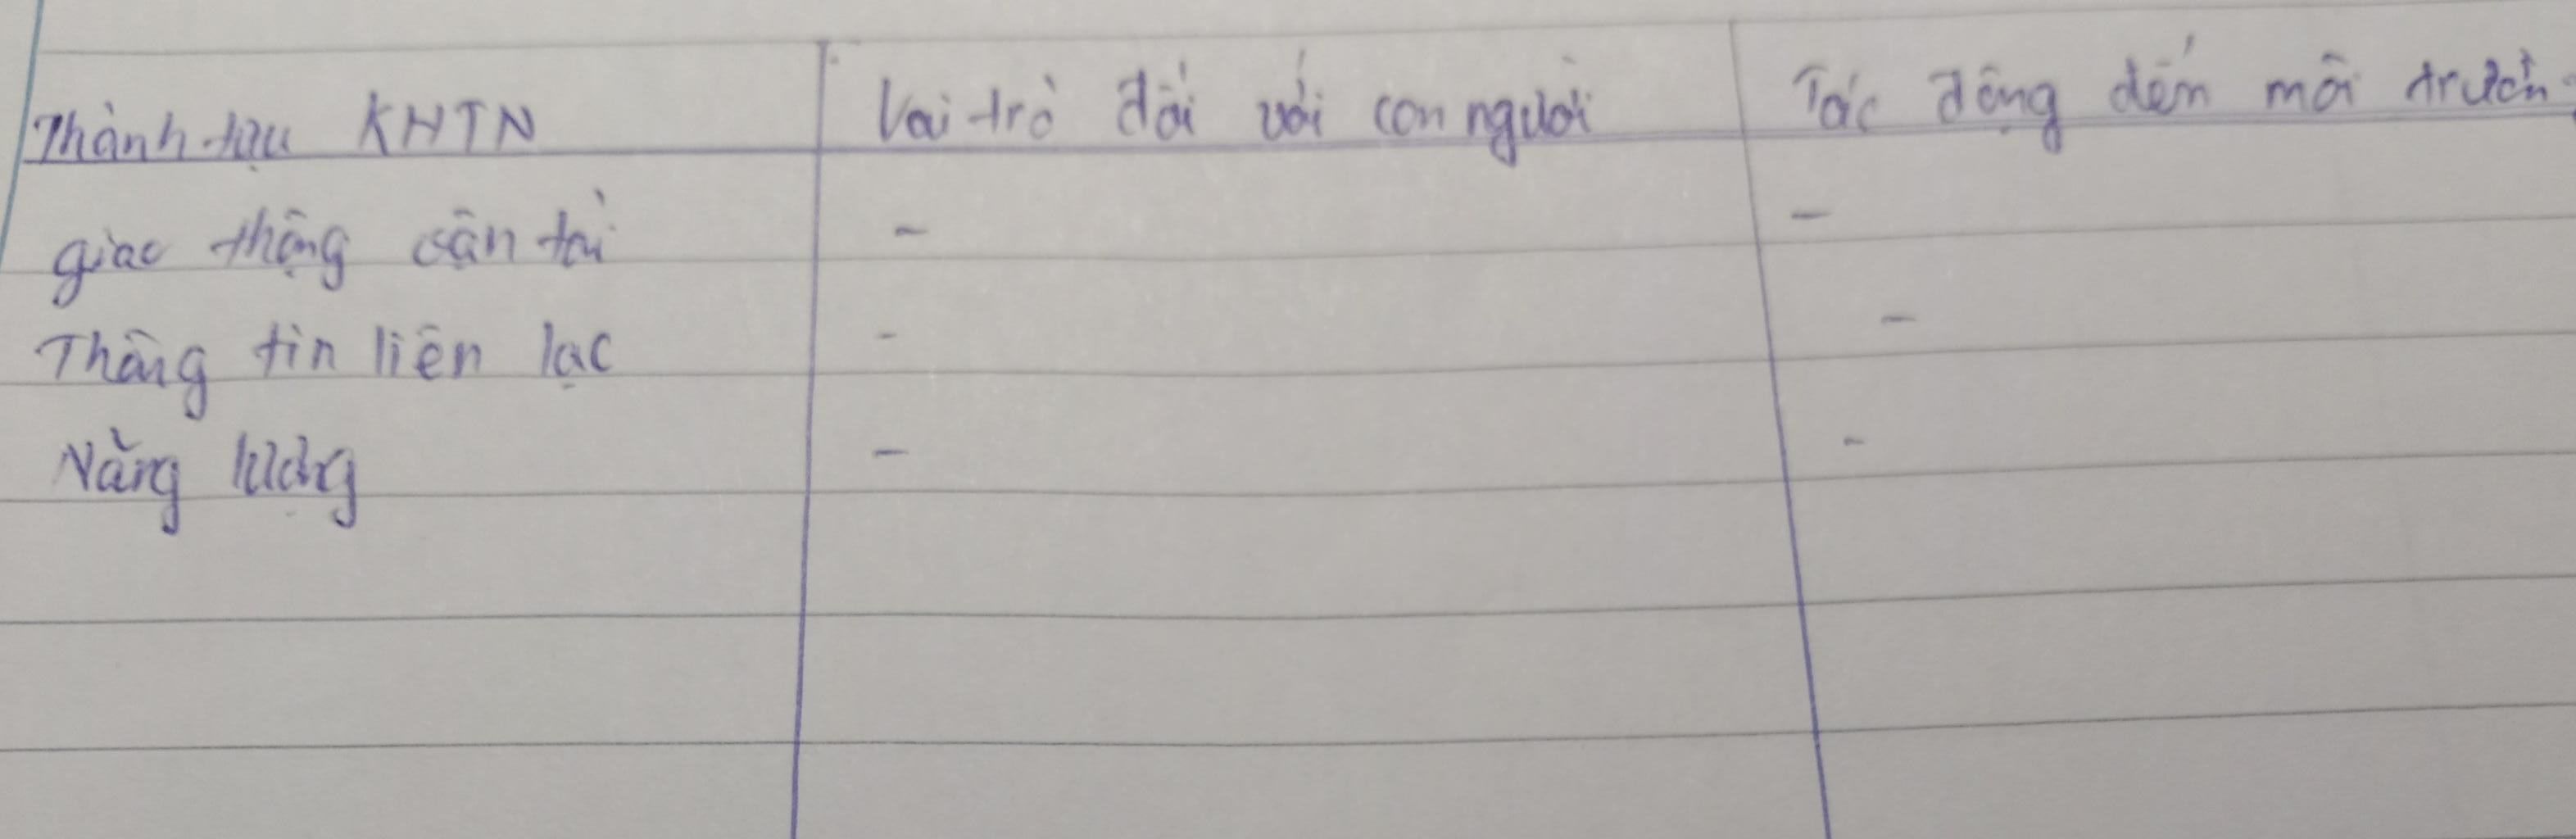 Thành tựu KHTN Vai trò đối với con người Tác động đến môi trườn
giao thông vận tải - -
Thông tin liên lạc - -
Năng lượng - -